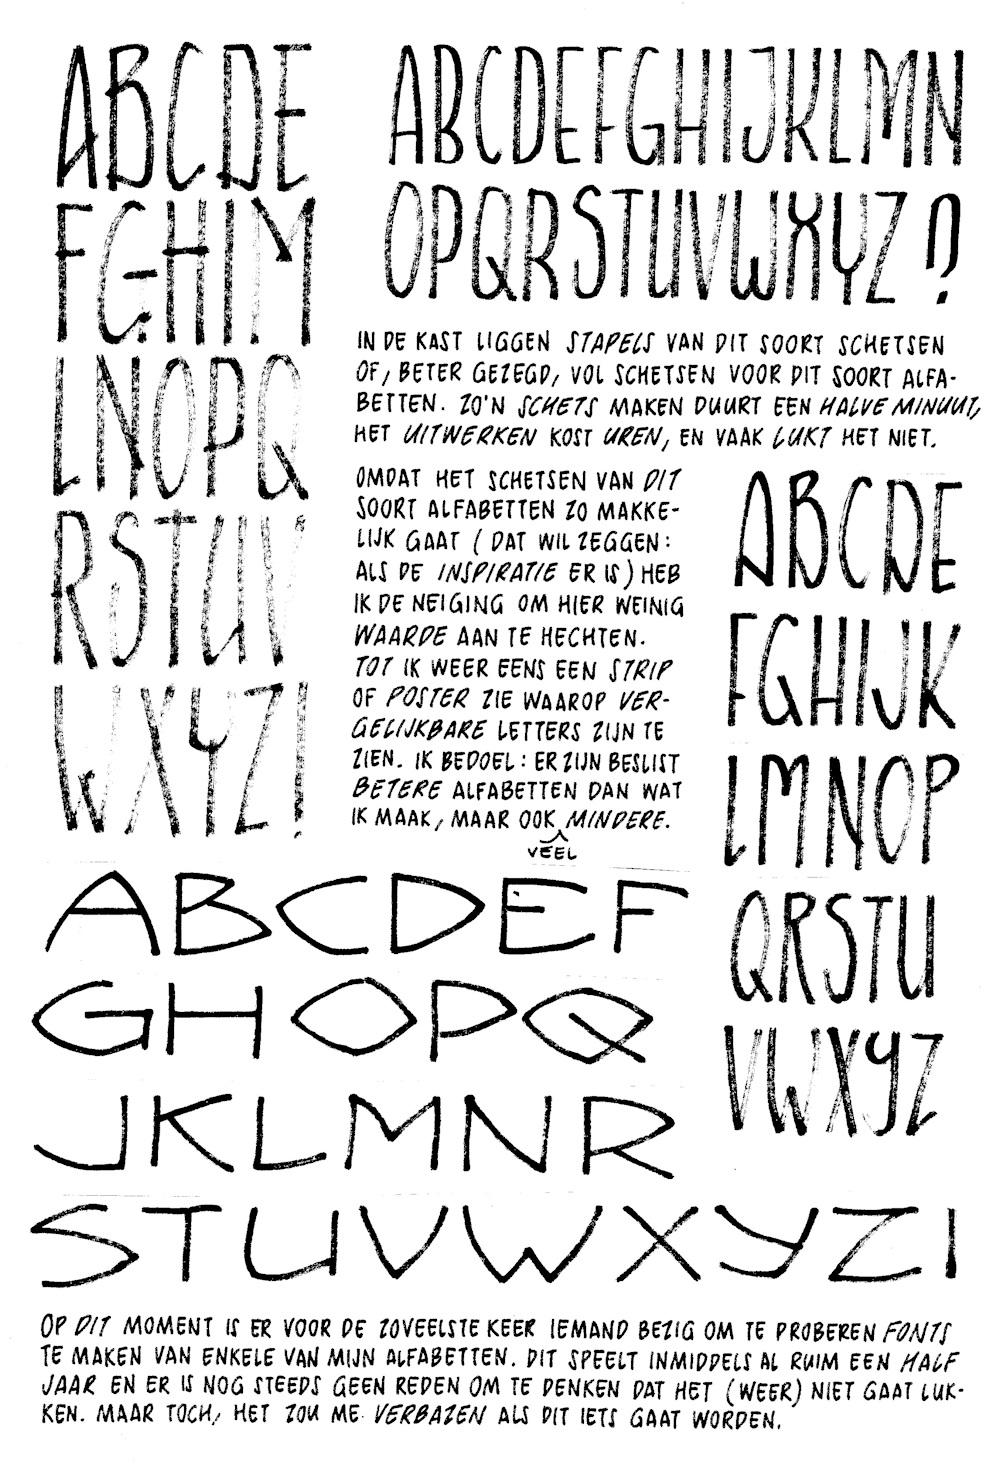 ABCDE
FGHIM
LNOPQ
RSTUV
WXYZ!
ABCDEFGHIJKLMN
OPQRSTUVWXYZ?
IN DE KAST LIGGEN STAPELS VAN DIT SOORT SCHETSEN
OF, BETER GEZEGD, VOL SCHETSEN VOOR DIT SOORT ALFA-
BETTEN. ZO'N SCHETS MAKEN DUURT EEN HALVE MINUUT,
HET UITWERKEN KOST UREN, EN VAAK LUKT HET NIET.
OMDAT HET SCHETSEN VAN DIT
SOORT ALFABETTEN ZO MAKKE-
LIJK GAAT (DAT WIL ZEGGEN:
ALS DE INSPIRATIE ER IS) HEB
IK DE NEIGING OM HIER WEINIG
WAARDE AAN TE HECHTEN.
TOT IK WEER EENS EEN STRIP
OF POSTER ZIE WAAROP VER-
GELIJKBARE LETTERS ZIJN TE
ZIEN. IK BEDOEL: ER ZIJN BESLIST
BETERE ALFABETTEN DAN WAT
IK MAAK, MAAR OOK MINDERE.
VEEL
ABCDE
FGHIJK
LMNOP
QRSTU
VWXYZ
ABCDEF
GHOPQ
JKLMNR
STUVWXYZI
OP DIT MOMENT IS ER VOOR DE ZOVEELSTE KEER IEMAND BEZIG OM TE PROBEREN FONTS
TE MAKEN VAN ENKELE VAN MIJN ALFABETTEN. DIT SPEELT INMIDDELS AL RUIM EEN HALF
JAAR EN ER IS NOG STEEDS GEEN REDEN OM TE DENKEN DAT HET (WEER) NIET GAAT LUK-
KEN. MAAR TOCH, HET ZOU ME VERBAZEN ALS DIT IETS GAAT WORDEN.